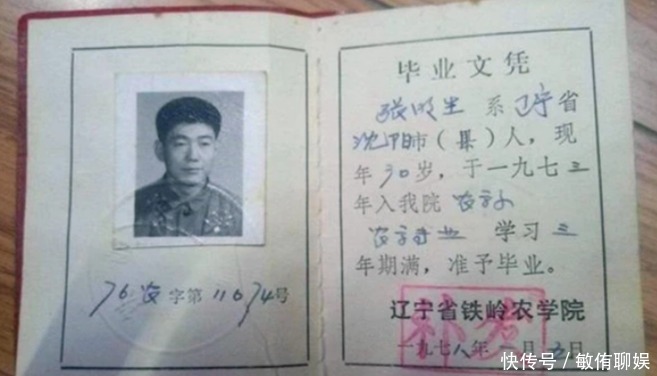 76农字第11674号
毕业文凭
张明生 系 辽宁省
沈阳市(县)人,现
年30岁,于一九七三
年入我院 农学系
农学专业 学习三
年期满,准予毕业。
辽宁省铁岭农学院
一九七八年一月 日
快传号 / 敏侑聊娱